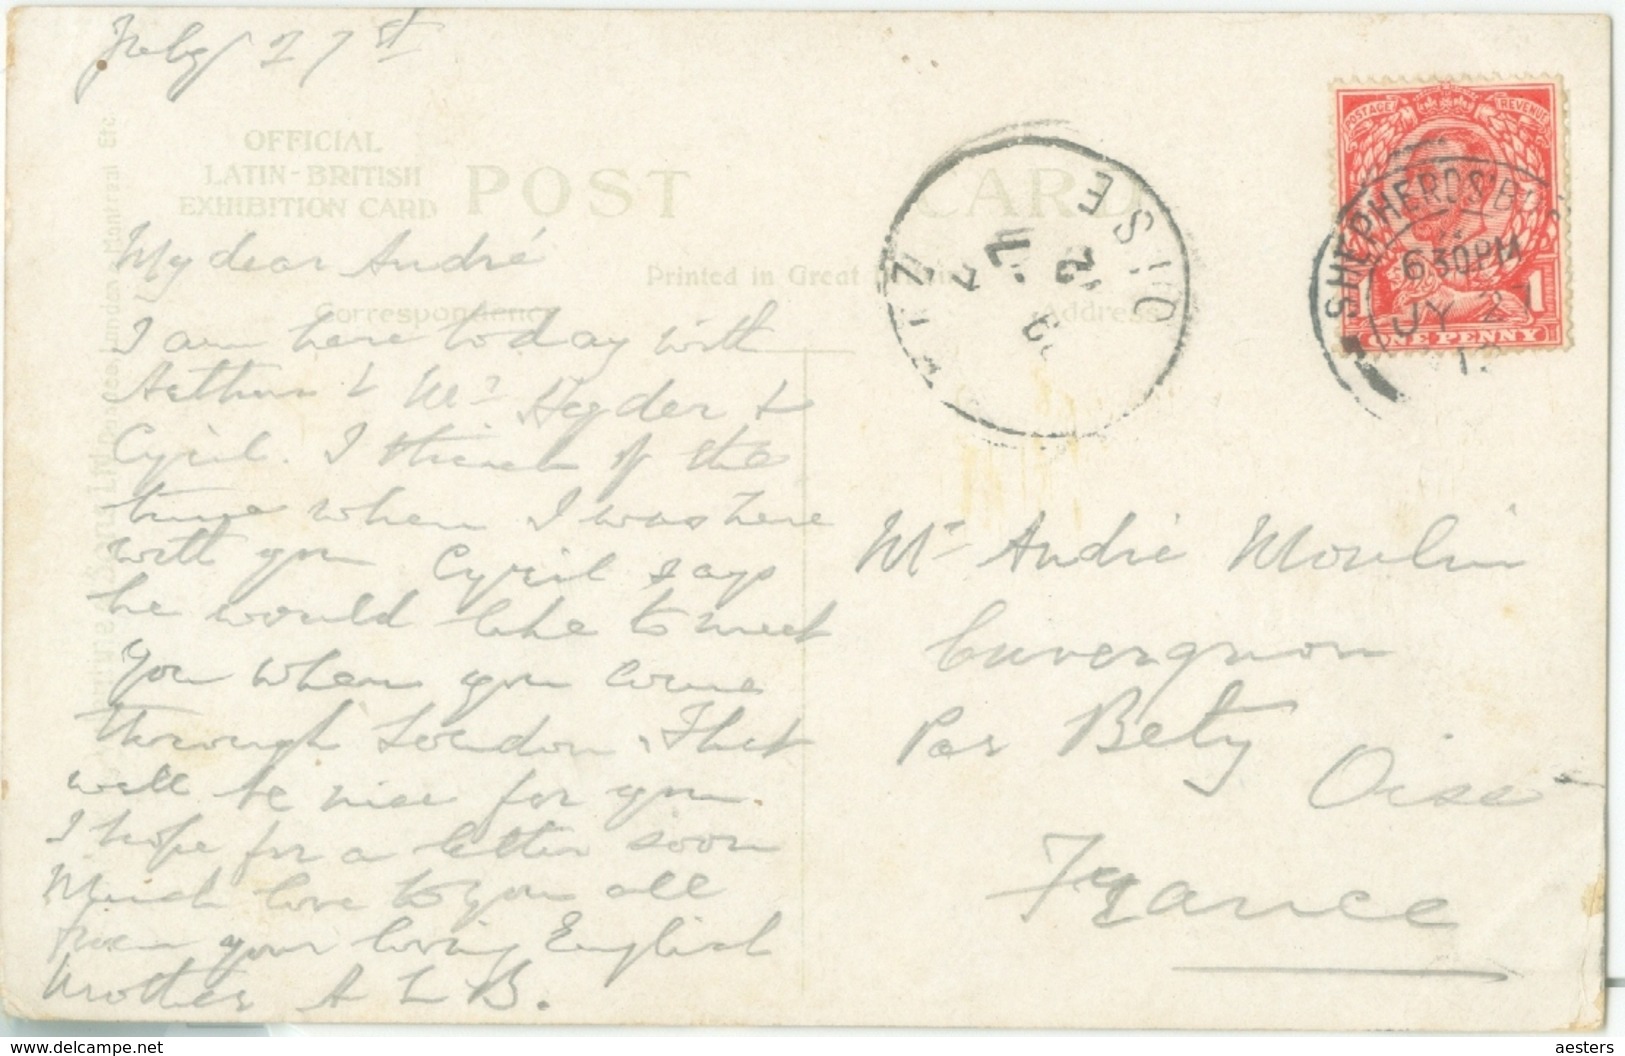 July 27st
OFFICIAL
LATIN-BRITISH
EXHIBITION CARD
POST CARD
Printed in Great
Correspondency
Address
My dear André
I am here today with
Arthur & Mrs Hyder &
Cyril. I think of the
time when I was here
with you Cyril says
he would like to meet
you when you come
through London. That
will be nice for you
I hope for a letter soon
Much love to you all
from your loving English
Mother A L B.
Mr André Moulin
Cuvergnon
Par Bety
Oise
France
POSTAGE REVENUE
ONE PENNY
1
SHEPHERDS' BUS
6 30 PM
JY 27
12
OISE
aesters